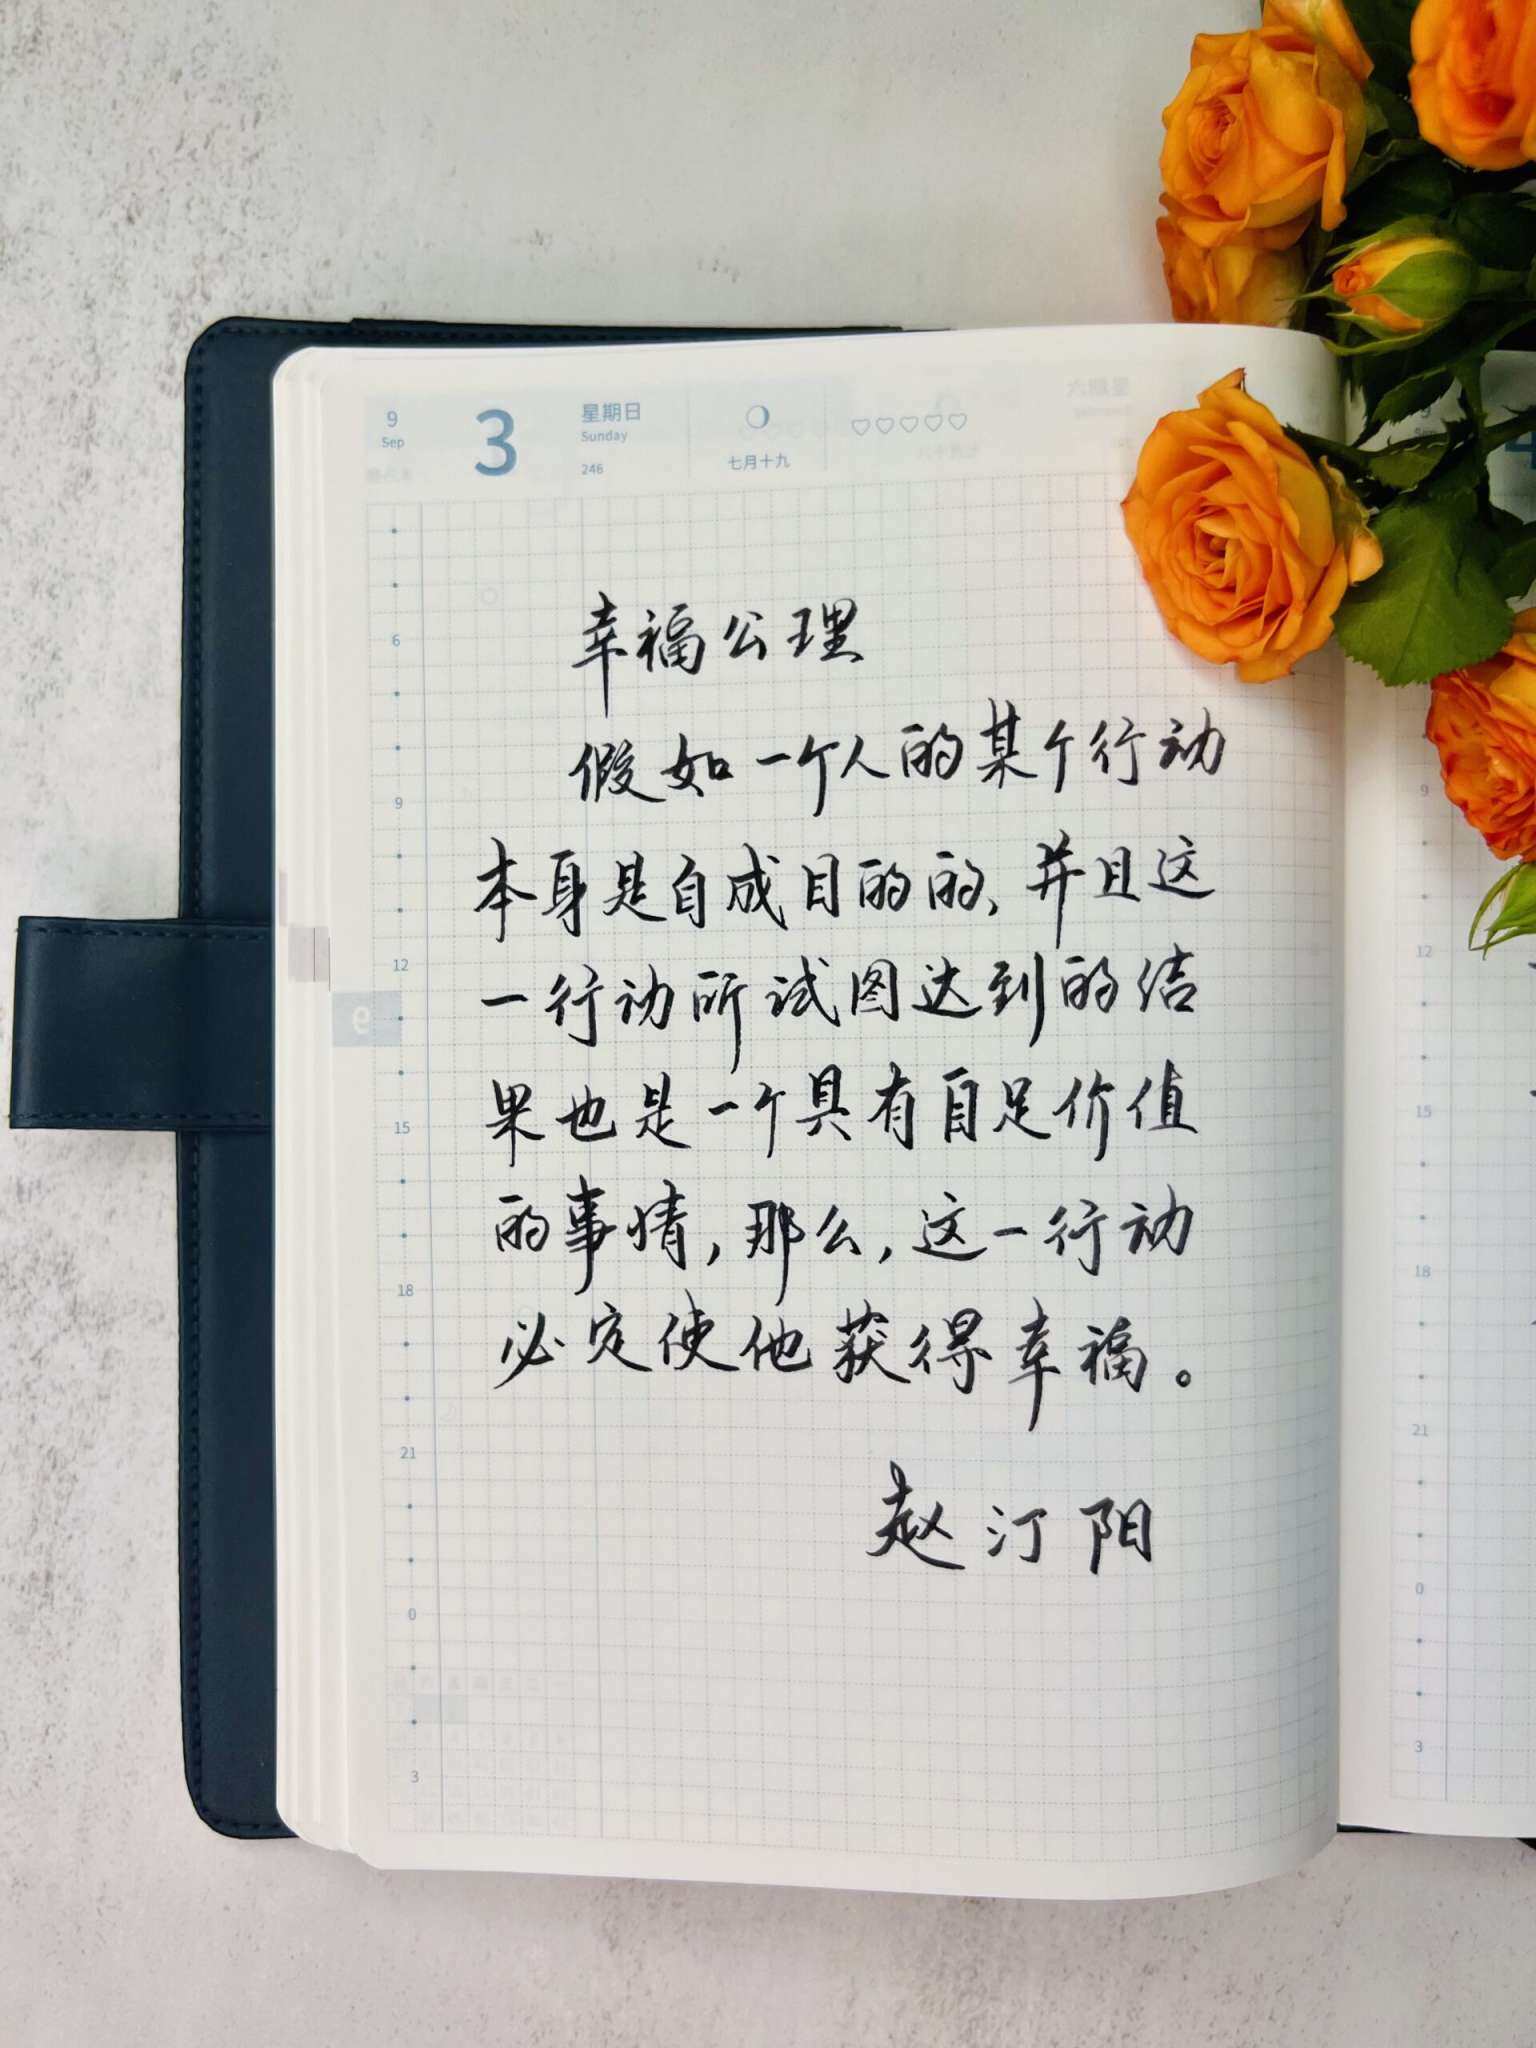 9
Sep
3
星期日
Sunday
246
七月十九
6
9
12
15
18
21
0
3
幸福公理
假如一个人的某个行动
本身是自成目的的、并且这
一行动所试图达到的结
果也是一个具有自足价值
的事情，那么，这一行动
必定使他获得幸福。
赵汀阳
9
12
15
18
21
0
3